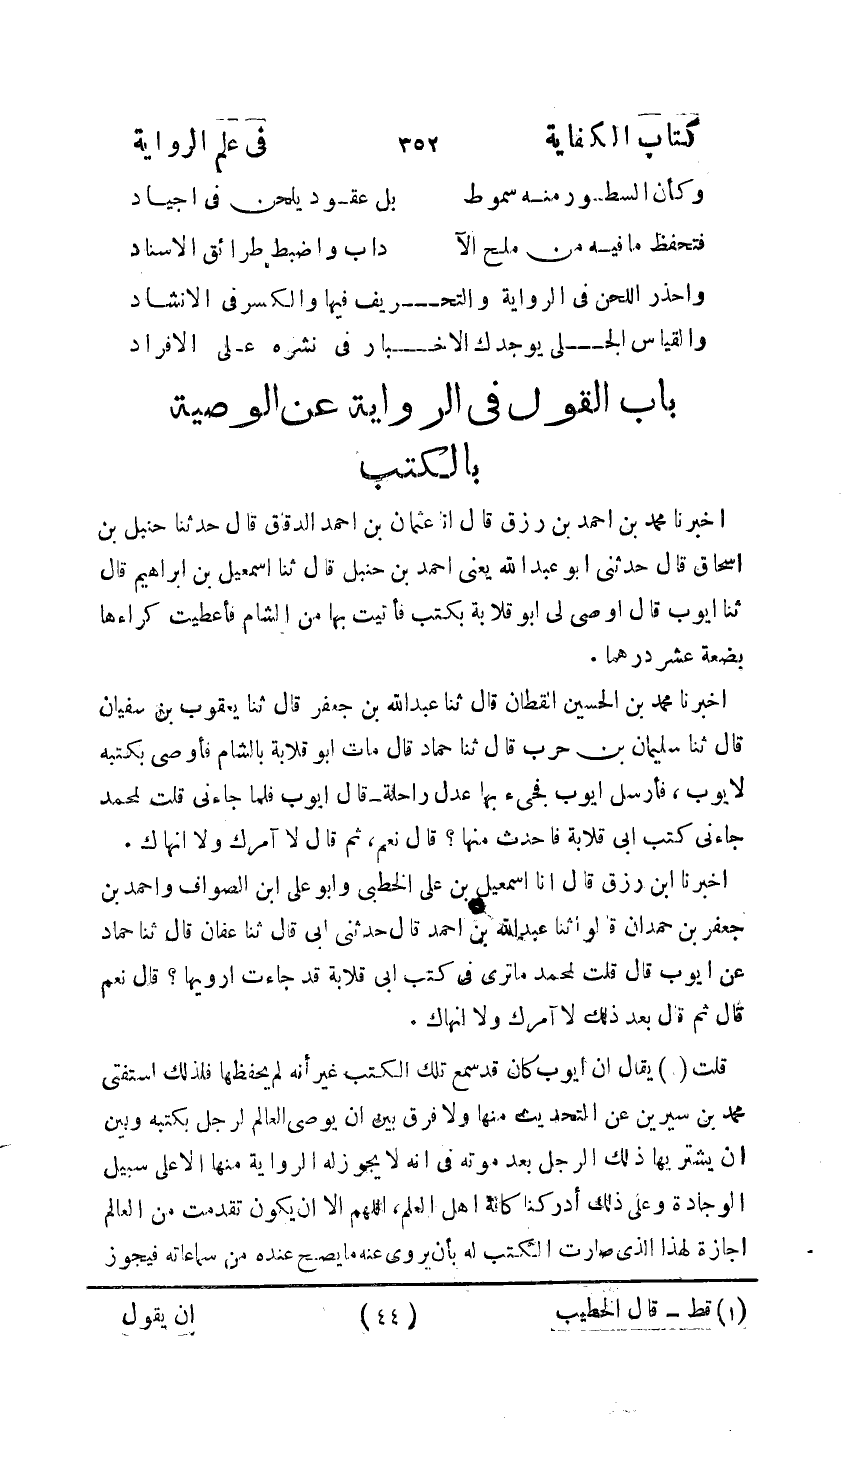 كتاب الكفاية ٣٥٢ فى علم الرواية
وكأن السطور منه سموط بل عقود يلحن فى اجياد
فتحفظ ما فيه من ملح الآ داب واضبط طرائق الاسناد
واحذر اللحن فى الرواية والتحـــريف فيها والكسر فى الانشاد
والقياس الجـــلى يوجدك الاخـــبار فى نشره عـلى الافراد
باب القول فى الرواية عن الوصية
بالكتب
اخبرنا محمد بن احمد بن رزق قال انا عثمان بن احمد الدقاق قال حدثنا حنبل بن
اسحاق قال حدثنى ابو عبد الله يعنى احمد بن حنبل قال ثنا اسمعيل بن ابراهيم قال
ثنا ايوب قال اوصى لى ابو قلابة بكتب فأتيت بها من الشام فأعطيت كراءها
بضعة عشر درهما .
اخبرنا محمد بن الحسين القطان قال ثنا عبدالله بن جعفر قال ثنا يعقوب بن سفيان
قال ثنا سليمان بن حرب قال ثنا حماد قال مات ابو قلابة بالشام فأوصى بكتبه
لايوب ، فأرسل ايوب فجىء بها عدل راحلة ـ قال ايوب فلما جاءنى قلت لمحمد
جاءنى كتب ابى قلابة فاحدث منها ؟ قال نعم، ثم قال لا آمرك ولا انهاك .
اخبرنا ابن رزق قال انا اسمعيل بن على الخطبى وابو على ابن الصواف واحمد بن
جعفر بن حمدان قالوا ثنا عبدالله بن احمد قال حدثنى ابى قال ثنا عفان قال ثنا حماد
عن ايوب قال قلت لمحمد ماترى فى كتب ابى قلابة قد جاءت ارويها ؟ قال نعم
قال ثم قال بعد ذلك لا آمرك ولا انهاك .
قلت (١) يقال ان أيوب كان قد سمع تلك الكتب غير أنه لم يحفظها فلذلك استفتى
محمد بن سيرين عن التحديث منها ولا فرق بين ان يوصى العالم لرجل بكتبه وبين
ان يشتريها ذلك الرجل بعد موته فى انه لا يجوز له الرواية منها الا على سبيل
الوجادة وعلى ذلك أدركنا كافة اهل العلم، اللهم الا ان يكون تقدمت من العالم
اجازة لهذا الذى صارت الكتب له بأن يروى عنه ما يصح عنده من سماعاته فيجوز
(١) قط ـ قال الخطيب (٤٤) ان يقول